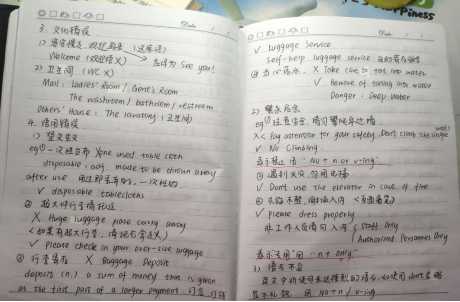 Happiness
Date
3. 文化错误
1) 慢走, 欢迎再来 (送客语)
Welcome (欢迎语X) 应译为 See you!
2) 卫生间 (WC X)
Mall: Ladies' Room / Gent's Room
The washroom / bathroom / restroom
Others' House: The lavatory (卫生间)
4. 语用错误
1) 望文生义
eg① 一次性台布 X one used table cloth
disposable: adj. made to be thrown away
after use 用过即丢弃的, 一次性的.
√ disposable tablecloths
② 超大件行李请托运
X Huge luggage please carry away
√ Please check in your over-size luggage
③ 行李寄存 X Baggage Deposit
deposit (n.) a sum of money that is given
as the first part of a larger payment. 订金
Date
√ Luggage Service
Self-help luggage service 自助寄存服务
④ 当心落水 X Take care to fall into water
√ Beware of falling into water
Danger: Deep Water
2) 警示用语
eg① 注意安全, 请勿攀爬
X < Pay attention for your safety, Don't climb the
√ No Climbing
表示禁止语 "No + n. or v-ing"
② 遇到火灾 勿用电梯
√ Don't use the elevator in case of fire
③ 衣冠不整, 谢绝入内
√ Please dress properly
非工作人员请勿入内 Staff Only
Authorized Personnel Only
表示专用 用 "n + only"
3) 语气不当
用 No + n / v-ing